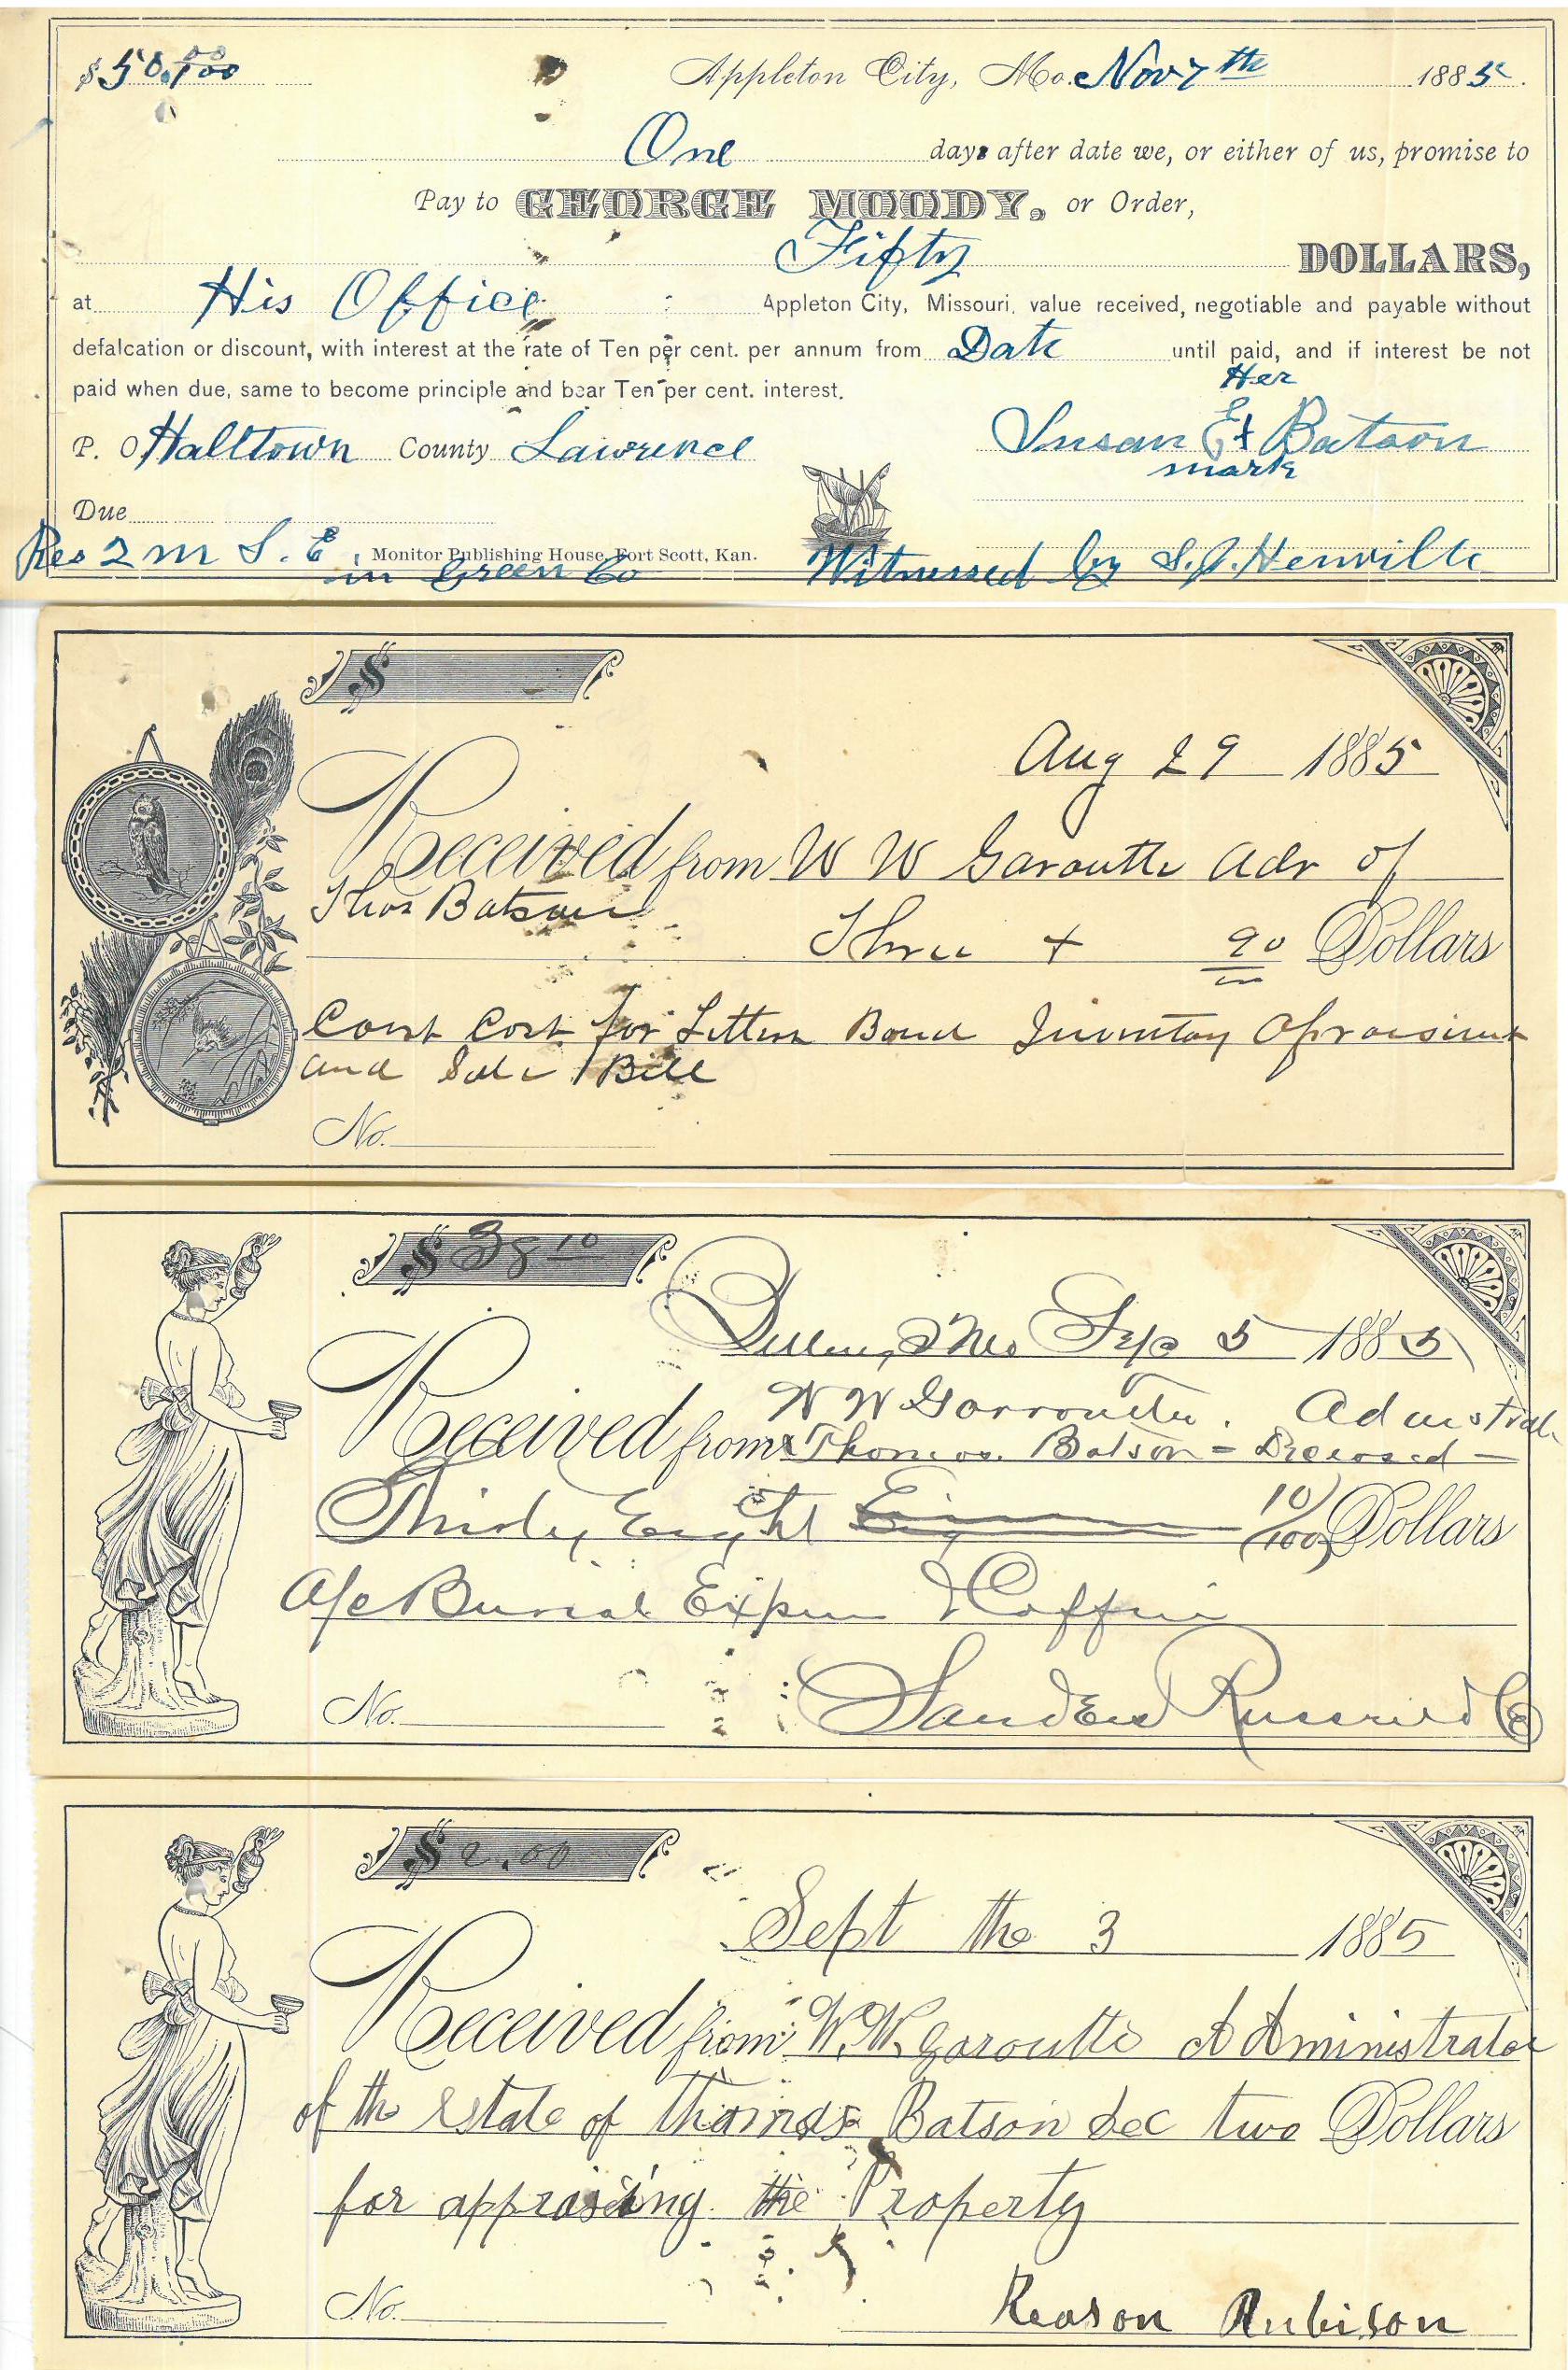 $50.00/100 Appleton City, Mo. Nov 7th 1885.
One days after date we, or either of us, promise to
Pay to GEORGE MOODY, or Order,
Fifty DOLLARS,
at His Office Appleton City, Missouri, value received, negotiable and payable without
defalcation or discount, with interest at the rate of Ten per cent. per annum from Date until paid, and if interest be not
paid when due, same to become principle and bear Ten per cent. interest.
Her
P. O. Halltown County Lawrence Susan E + Batson
mark
Due
Res 2 m S. E. Monitor Publishing House, Fort Scott, Kan.
in Green Co Witnessed by S. J. Henville
$
Aug 29 1885
Received from W W Garoutte Adr of
Thos Batson
Three + 90 Dollars
Court Cost for Letters Bond Inventory Apraisiment
and Sale Bill
No.
$ 38 10
Mo Sep 5 1885
W W Garroutte. Admistrat
Received from Thomas Batson - Deceased -
Thirty Eight 10/100 Dollars
A/c Burial Expen & Coffin
No. Sanders Co
$ 2.00
Sept the 3 1885
Received from W. W. Garoutte Administrator
of the Estate of Thomas Batson dec two Dollars
for appraising the Property
No.
Reason Rubison